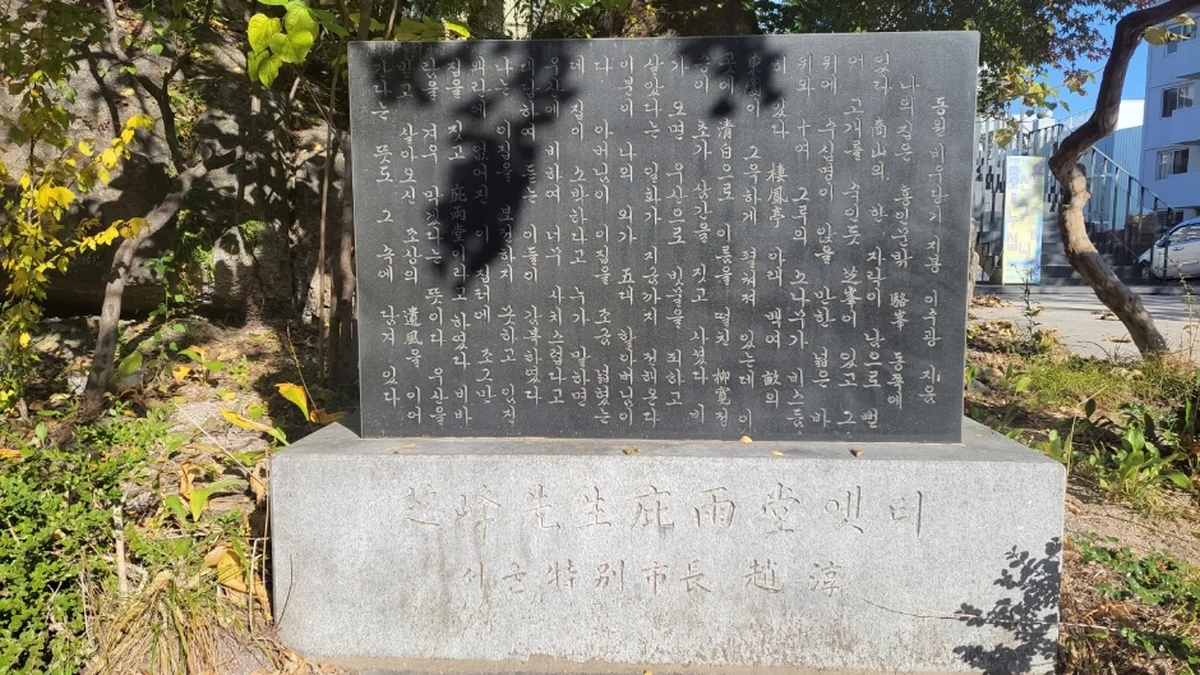 동원비우당기 지봉 이수광 지음
나의 집은 흥인문밖 駱峯 동쪽에
있다 商山의 한 자락이 남으로 뻗
어 고개를 숙인듯 芝峯이 있고 그
위에 수십명이 앉을 만한 넓은 바
위와 十여 그루의 소나무가 비스듬
히 있다 棲鳳亭 아래 백여 畝의
東園이 그윽하게 펼쳐져 있는데 이
곳에 淸白으로 이름을 떨친 柳寬정
승이 초가 삼간을 짓고 사셨다 비
가 오면 우산으로 빗물을 피하고
살았다는 일화가 지금까지 전해온다
이분이 나의 외가 五대 할아버님이
다 아버님이 이집을 조금 넓혔는
데 집이 소박하다고 누가 말하면
우산에 비하여 너무 사치스럽다고
대답하여 듣는 이들이 감복하였다
나는 이집을 보전하지 못하고 임진
왜란에 없어진 이 집터에 조그만
집을 짓고 庇雨堂이라고 하였다 비바
람을 겨우 막겠다는 뜻이다 우산을
받고 살아오신 조상의 遺風을 이어
간다는 뜻도 그 속에 담겨 있다
芝峰先生庇雨堂옛터
서울特別市長 趙淳